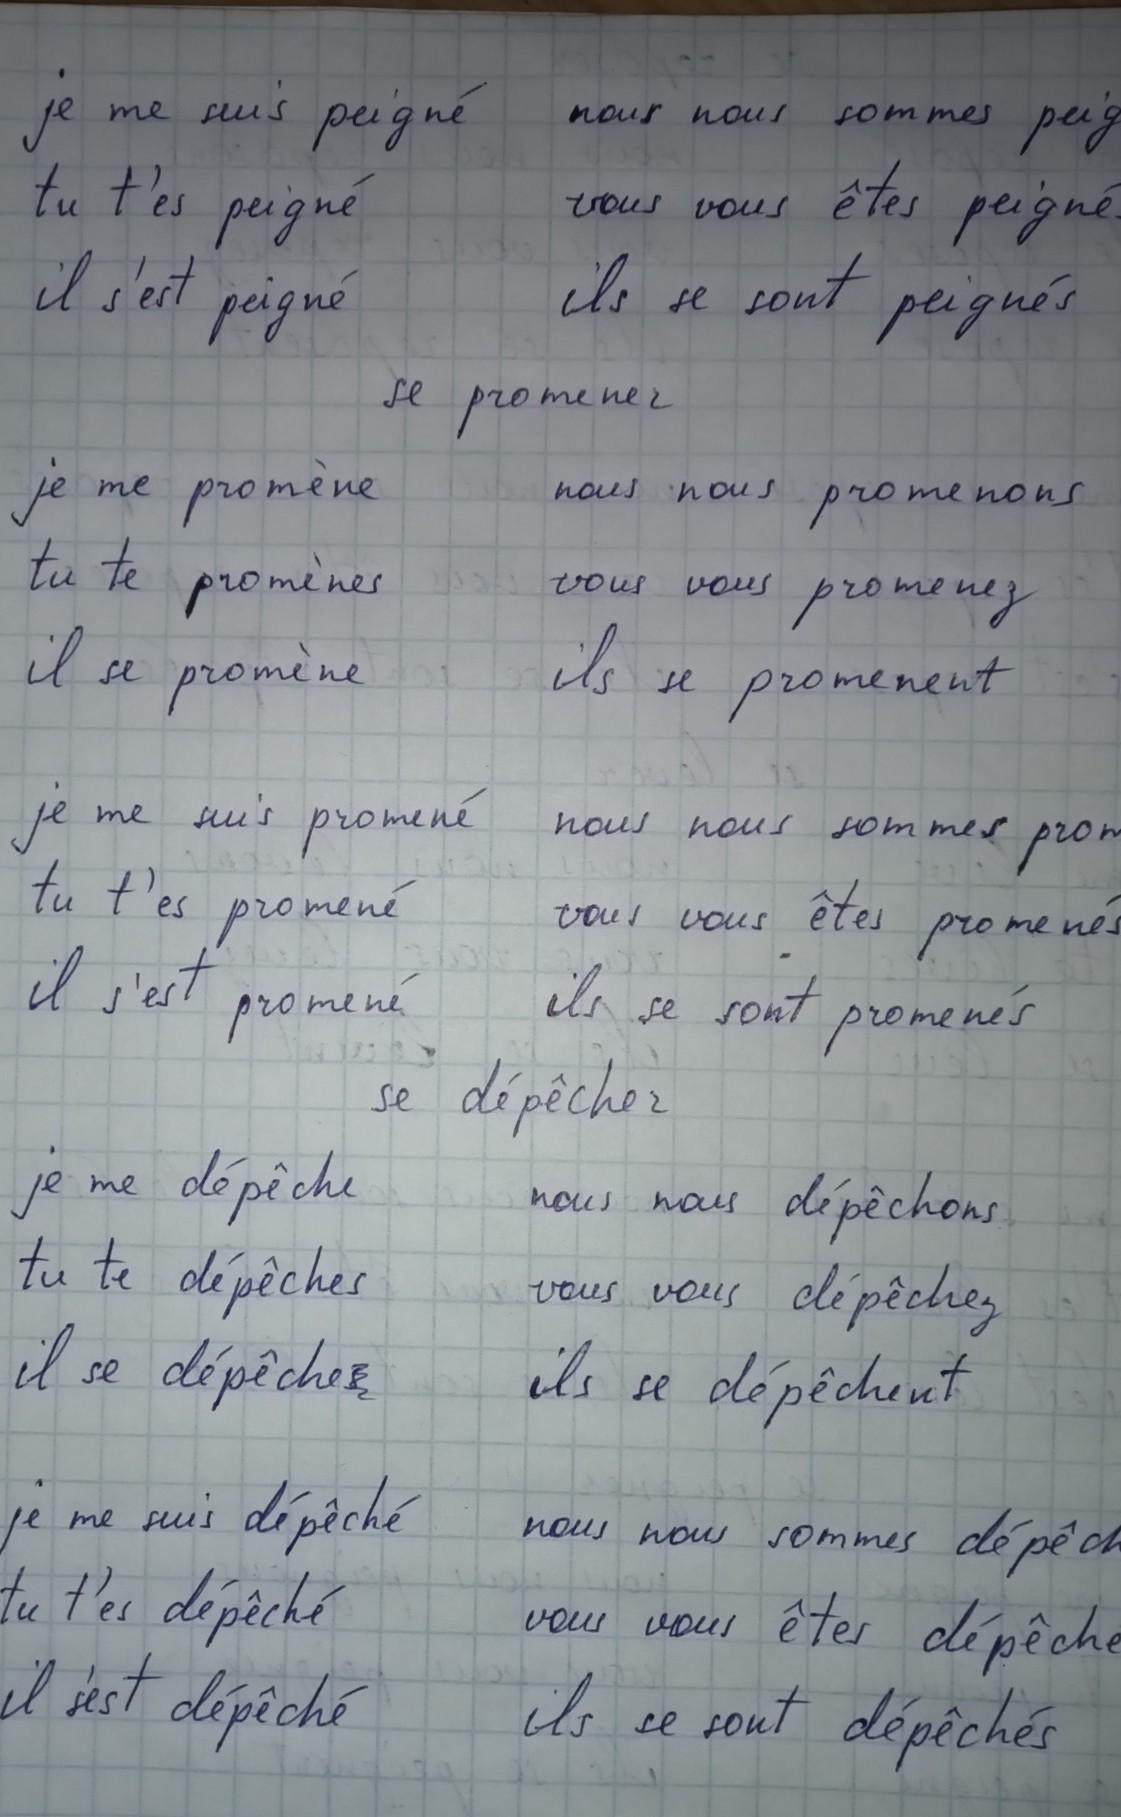 je me suis peigné nous nous sommes peig
tu t'es peigné vous vous êtes peigné
il s'est peigné ils se sont peignés
se promener
je me promène nous nous promenons
tu te promènes vous vous promenez
il se promène ils se promenent
je me suis promené nous nous sommes prom
tu t'es promené vous vous êtes promenés
il s'est promené ils se sont promenés
se dépêcher
je me dépêche nous nous dépêchons
tu te dépêches vous vous dépêchez
il se dépêche ils se dépêchent
je me suis dépêché nous nous sommes dépêch
tu t'es dépêché vous vous êtes dépêche
il s'est dépêché ils se sont dépêchés